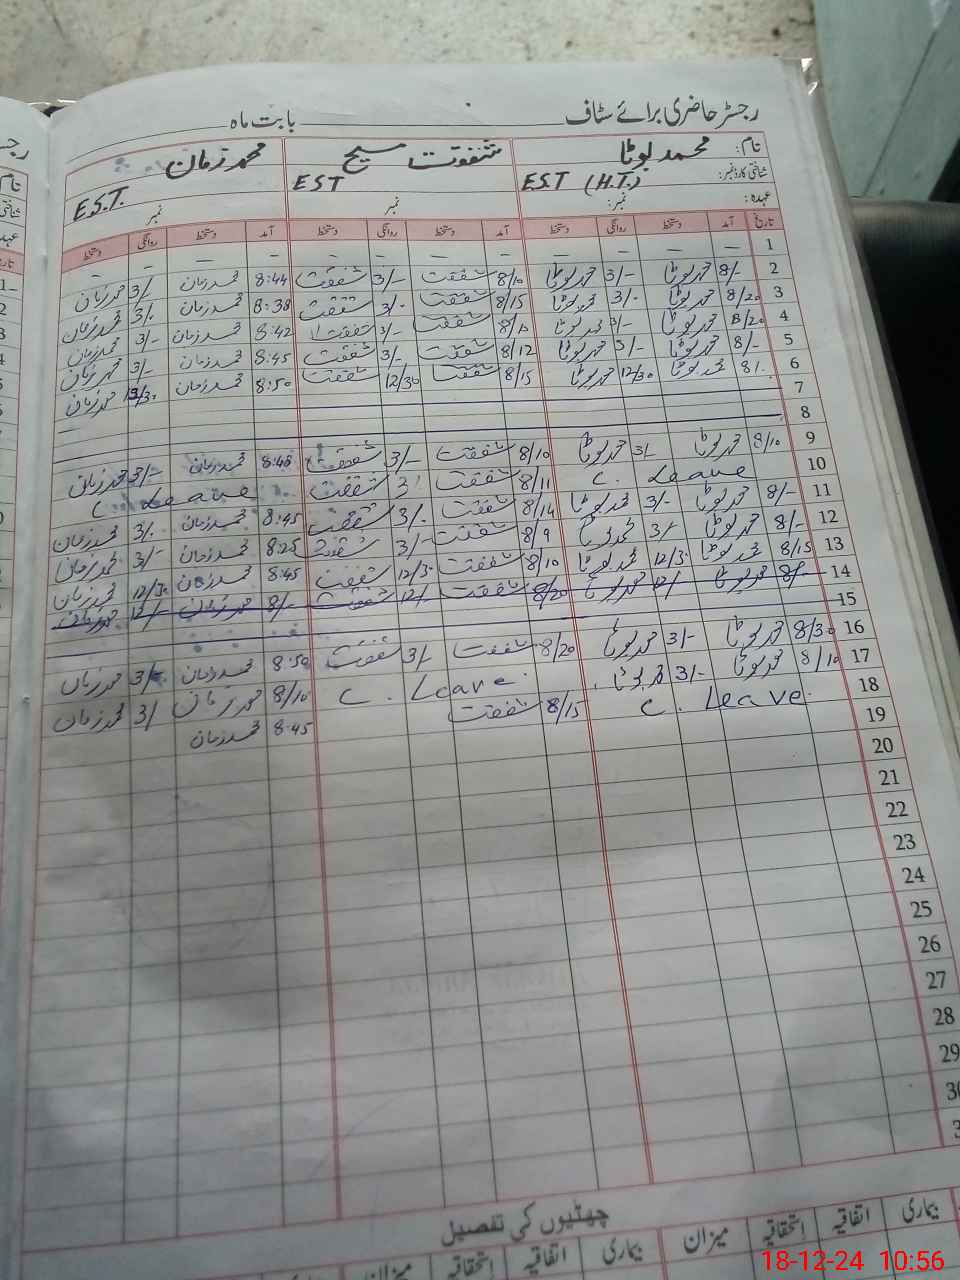 رجسٹر حاضری برائے سٹاف بابت ماہ
نام: محمد بوٹا شفقت مسیح محمد زمان
شناختی کارڈ نمبر: E.S.T (H.T.) EST E.S.T.
عہدہ: نمبر: نمبر نمبر
تاریخ آمد دستخط روانگی دستخط آمد دستخط روانگی دستخط آمد دستخط روانگی دستخط
1 – – – – – – – – – – – –
2 8/- محمد بوٹا 3/- محمد بوٹا 8/10 شفقت 3/- شفقت 8:44 محمد زمان 3/- محمد زمان
3 8/20 محمد بوٹا 3/- محمد بوٹا 8/15 شفقت 3/- شفقت 8:38 محمد زمان 3/- محمد زمان
4 8/20 محمد بوٹا 3/- محمد بوٹا 8/10 شفقت 3/- شفقت 8:42 محمد زمان 3/- محمد زمان
5 8/- محمد بوٹا 3/- محمد بوٹا 8/12 شفقت 3/- شفقت 8:45 محمد زمان 3/- محمد زمان
6 8/- محمد بوٹا 12/30 محمد بوٹا 8/15 شفقت 12/30 شفقت 8:50 محمد زمان 12/30 محمد زمان
7
8
9 8/10 محمد بوٹا 3/- محمد بوٹا 8/10 شفقت 3/- شفقت 8:45 محمد زمان 3/- محمد زمان
10 C. Leave 8/11 شفقت 3/ شفقت C. Leave
11 8/- محمد بوٹا 3/- محمد بوٹا 8/14 شفقت 3/- شفقت 8:45 محمد زمان 3/- محمد زمان
12 8/- محمد بوٹا 3/- محمد بوٹا 8/9 شفقت 3/- شفقت 8:25 محمد زمان 3/- محمد زمان
13 8/15 محمد بوٹا 12/30 محمد بوٹا 8/10 شفقت 12/30 شفقت 8:45 محمد زمان 12/30 محمد زمان
14 8/- محمد بوٹا 12/- محمد بوٹا 8/20 شفقت 12/- شفقت 8/- محمد زمان 12/- محمد زمان
15
16 8/30 محمد بوٹا 3/- محمد بوٹا 8/20 شفقت 3/- شفقت 8:50 محمد زمان 3/- محمد زمان
17 8/10 محمد بوٹا 3/- محمد بوٹا C. Leave 8/10 محمد زمان 3/ محمد زمان
18 C. Leave 8/15 شفقت 8:45 محمد زمان
19
20
21
22
23
24
25
26
27
28
29
30
چھٹیوں کی تفصیل
بیماری اتفاقیہ استحقاقیہ میزان بیماری اتفاقیہ استحقاقیہ میزان
18-12-24 10:56